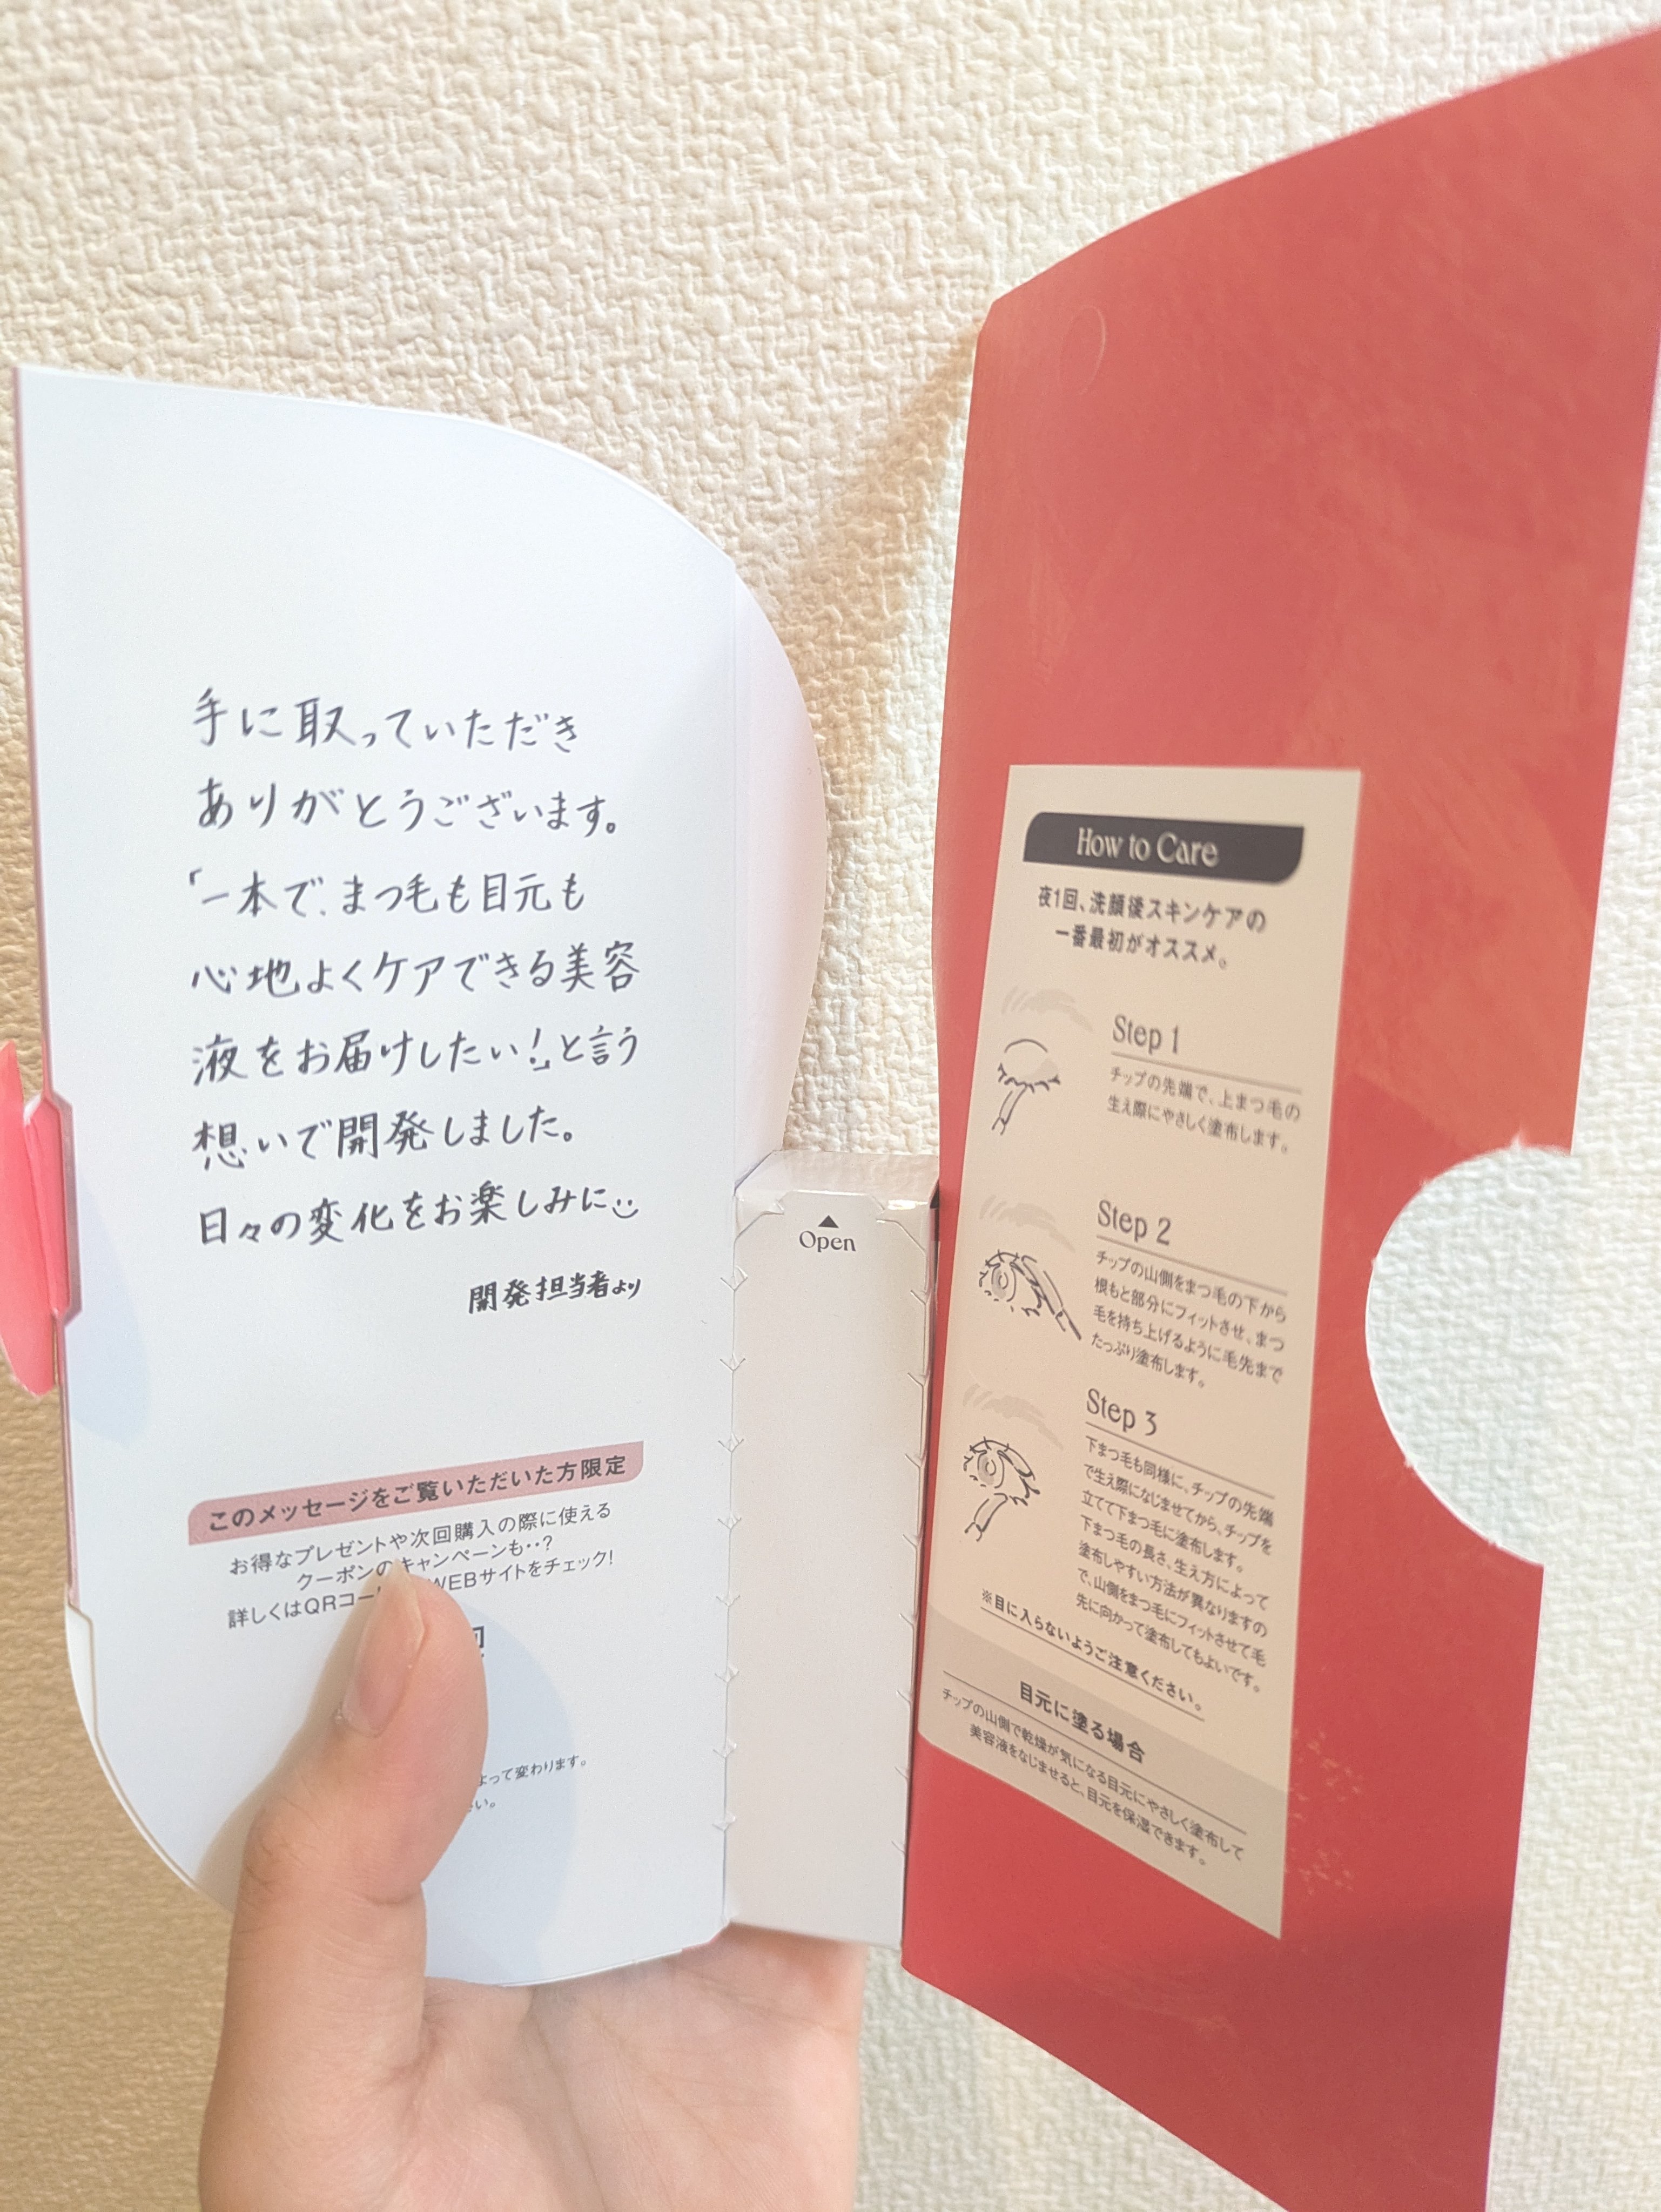 手に取っていただき
ありがとうございます。
「一本で、まつ毛も目元も
心地よくケアできる美容
液をお届けしたい！」と言う
想いで開発しました。
日々の変化をお楽しみに
開発担当者より
このメッセージをご覧いただいた方限定
お得なプレゼントや次回購入の際に使える
クーポンのキャンペーンも‥?
詳しくはQRコー WEBサイトをチェック!
よって変わります。
さい。
Open
How to Care
夜1回、洗顔後スキンケアの
一番最初がオススメ。
Step 1
チップの先端で、上まつ毛の
生え際にやさしく塗布します。
Step 2
チップの山側をまつ毛の下から
根もと部分にフィットさせ、まつ
毛を持ち上げるように毛先まで
たっぷり塗布します。
Step 3
下まつ毛も同様に、チップの先端
で生え際になじませてから、チップを
立てて下まつ毛に塗布します。
下まつ毛の長さ、生え方によって
塗布しやすい方法が異なりますの
で、山側をまつ毛にフィットさせて毛
先に向かって塗布してもよいです。
※目に入らないようご注意ください。
目元に塗る場合
チップの山側で乾燥が気になる目元にやさしく塗布して
美容液をなじませると、目元を保湿できます。